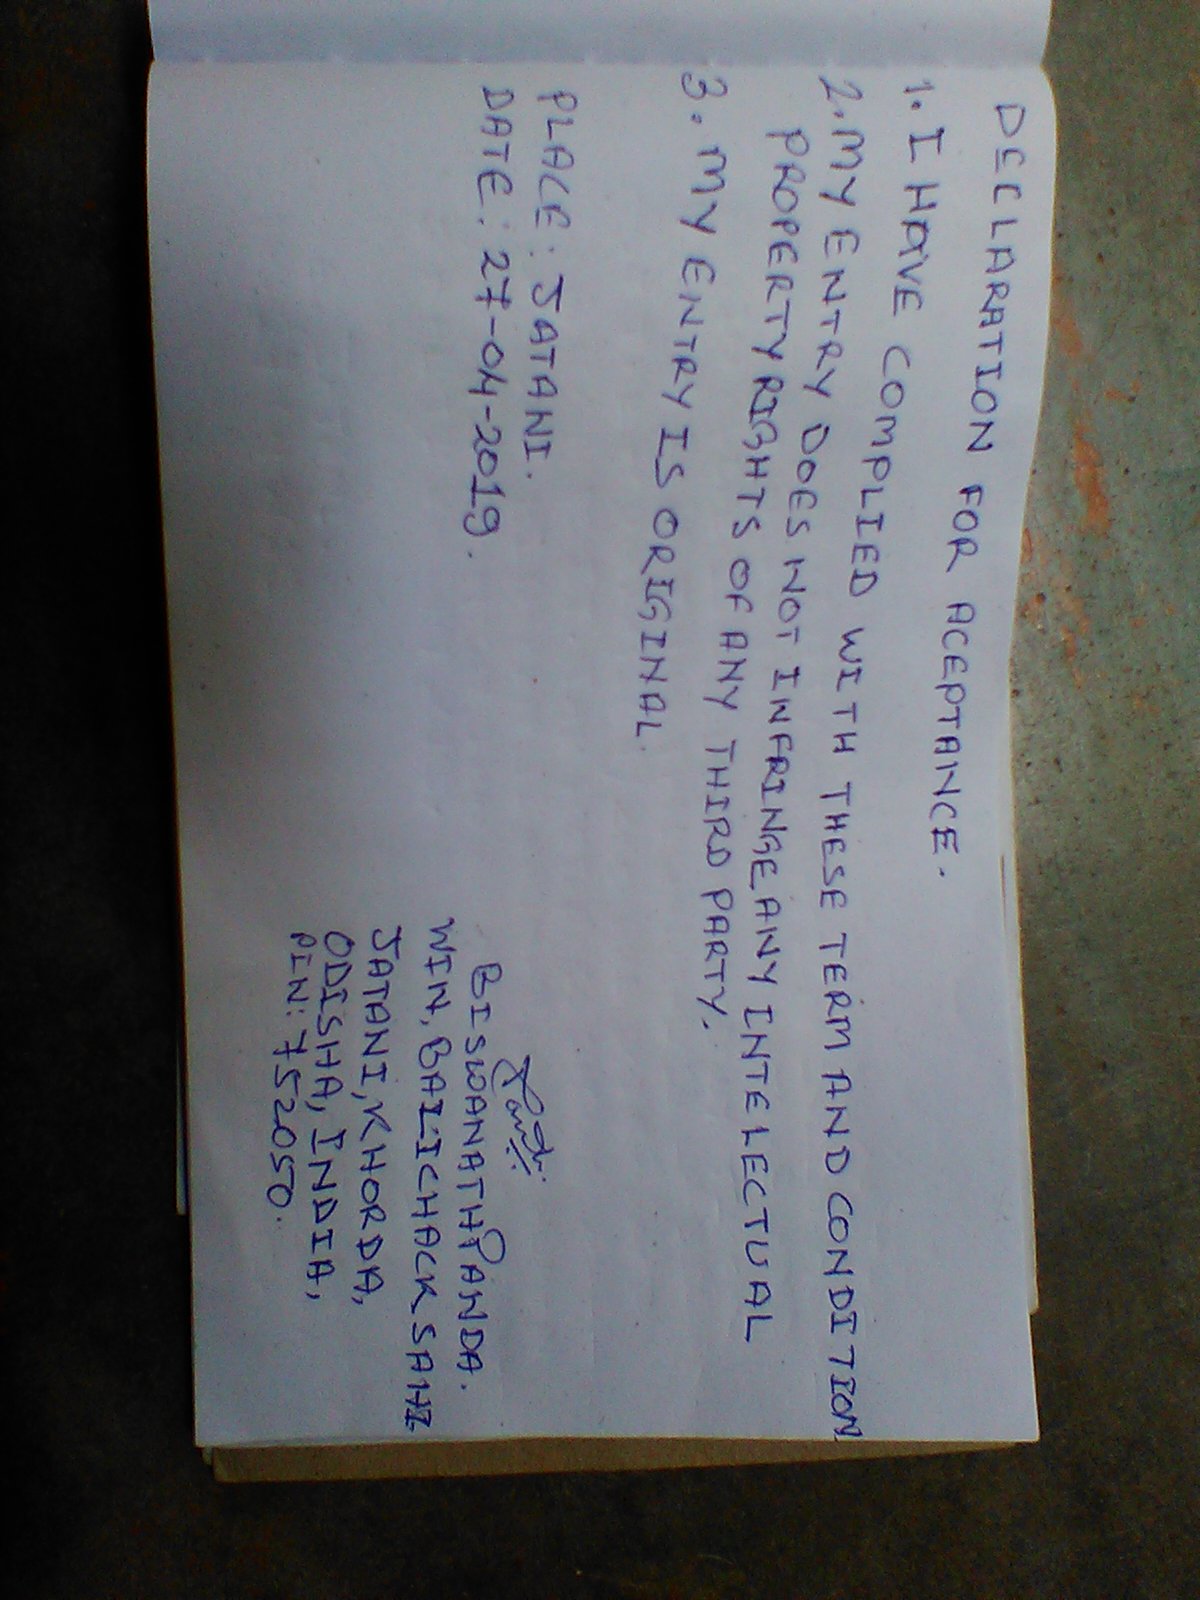 DECLARATION FOR ACEPTANCE.
1. I HAVE COMPLIED WITH THESE TERM AND CONDITION
2. MY ENTRY DOES NOT INFRINGE ANY INTELECTUAL
PROPERTY RIGHTS OF ANY THIRD PARTY.
3. MY ENTRY IS ORIGINAL.
PLACE: JATANI.
DATE: 27-04-2019.
BISWANATH PANDA.
WIN, BALICHACK SAHI
JATANI, KHORDA,
ODISHA, INDIA,
PIN: 752050.